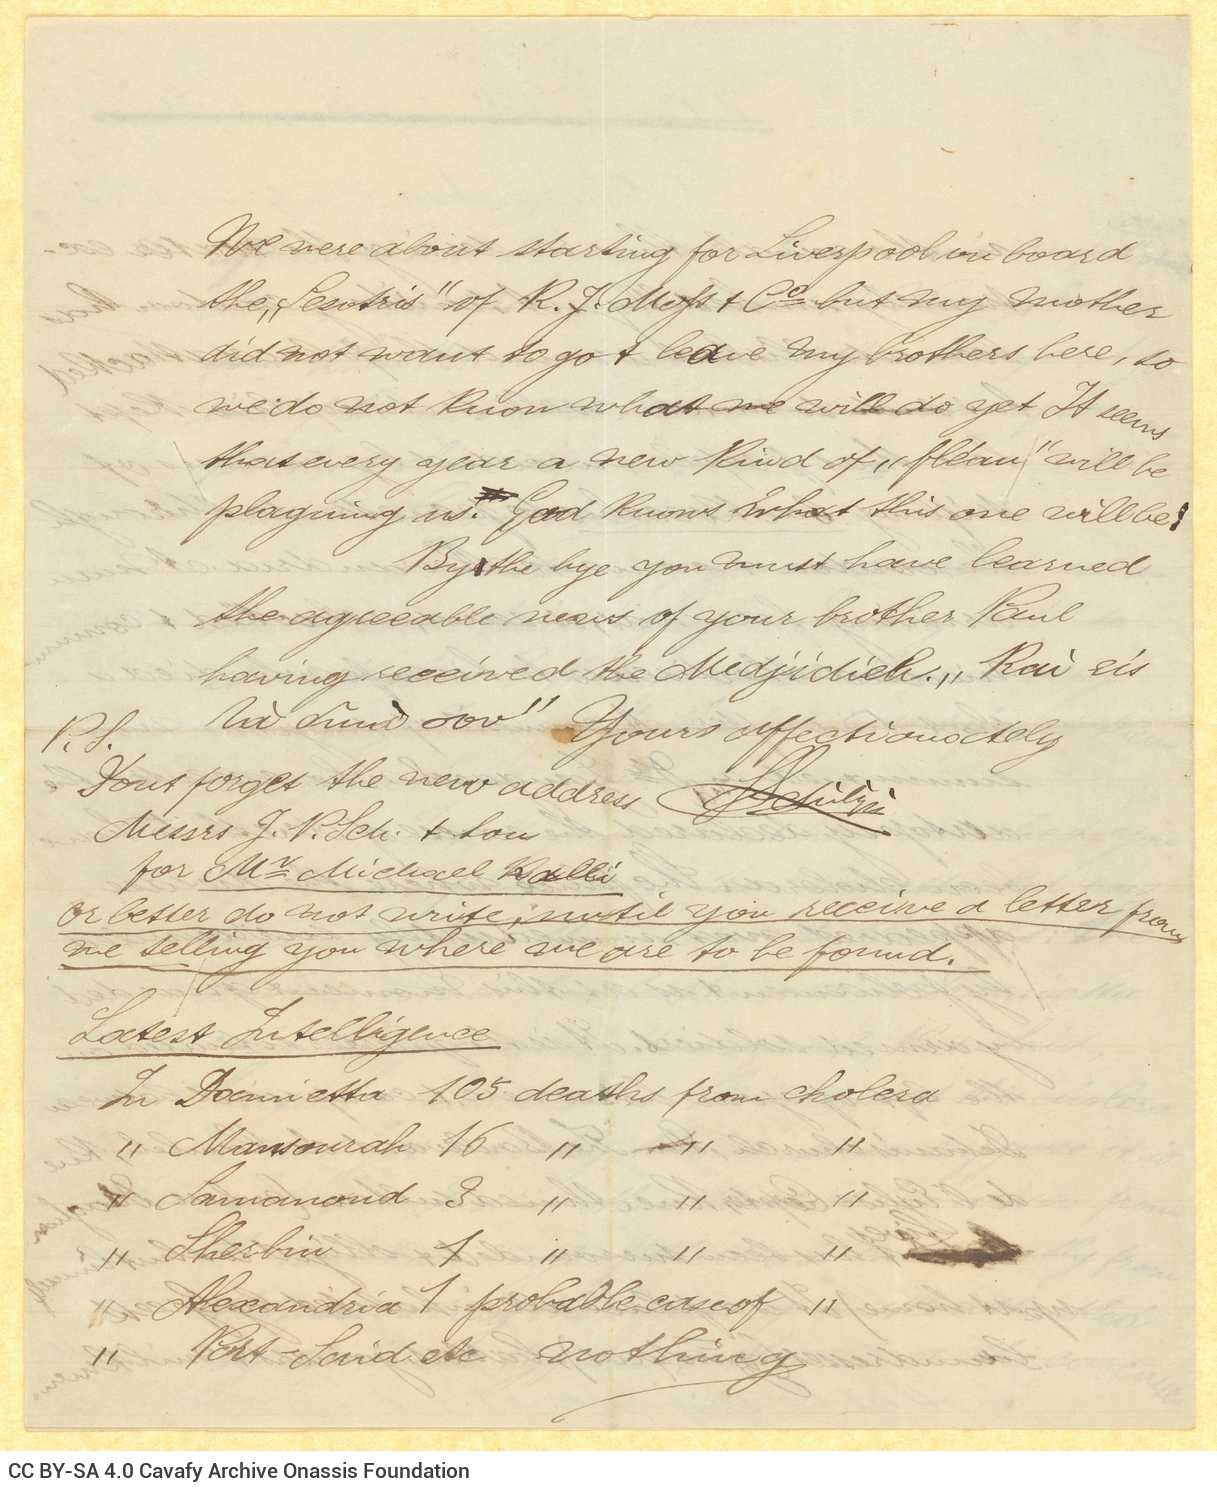 We were about starting for Liverpool on board
the „Sesotris" of R. J. Moss & Co but my mother
did not want to go & leave my brothers here, so
we do not know what we will do yet It seems
that every year a new kind of „fléau" will be
plaguing us. God knows what this one will be!
By the bye you must have learned
the agreeable news of your brother Paul
having received the Medjidieh. „Και εις
Yours affectionately
P.S.
Dont forget the new address
Messrs J. P. Sch. & Son
for Mr Michael Ralli
or better do not write, until you receive a letter from
me telling you where we are to be found.
Latest Intelligence
In Damietta 105 deaths from cholera
" Mansourah 16 " " "
" Samanoud 3 " " "
" Sherbin 1 " " "
" Alexandria 1 probable case of "
" Port-Said etc nothing
CC BY-SA 4.0 Cavafy Archive Onassis Foundation